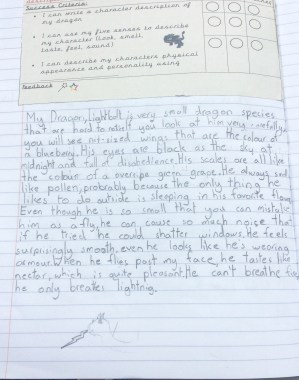 Success Criteria:
• I can write a character description of my dragon
• I can use my five senses to describe my character (look, smell, taste, feel, sound)
• I can describe my characters physical appearance and personality using
Feedback
My Dragon, Lightbolt is very small dragon species
that are hard to If you look at him very carefully
you will see nit-sized wings that are the colour of
a blueberry. His eyes are black as the sky at
midnight and full of disobedience. His scales are all like
the colour of a overripe green grape. He always smells
like pollen, probably because the only thing he
likes to do outside is sleeping in his favorite flower.
Even though he is so small that you can mistake
him as a fly, he can cause so much noise that
if he tried he could shatter windows. He feels
surprisingly smooth, even he looks like he's wearing
armour. When he flies past my face, he tastes like
nectar, which is quite pleasant. He can't breathe fire
he only breates lightnig.